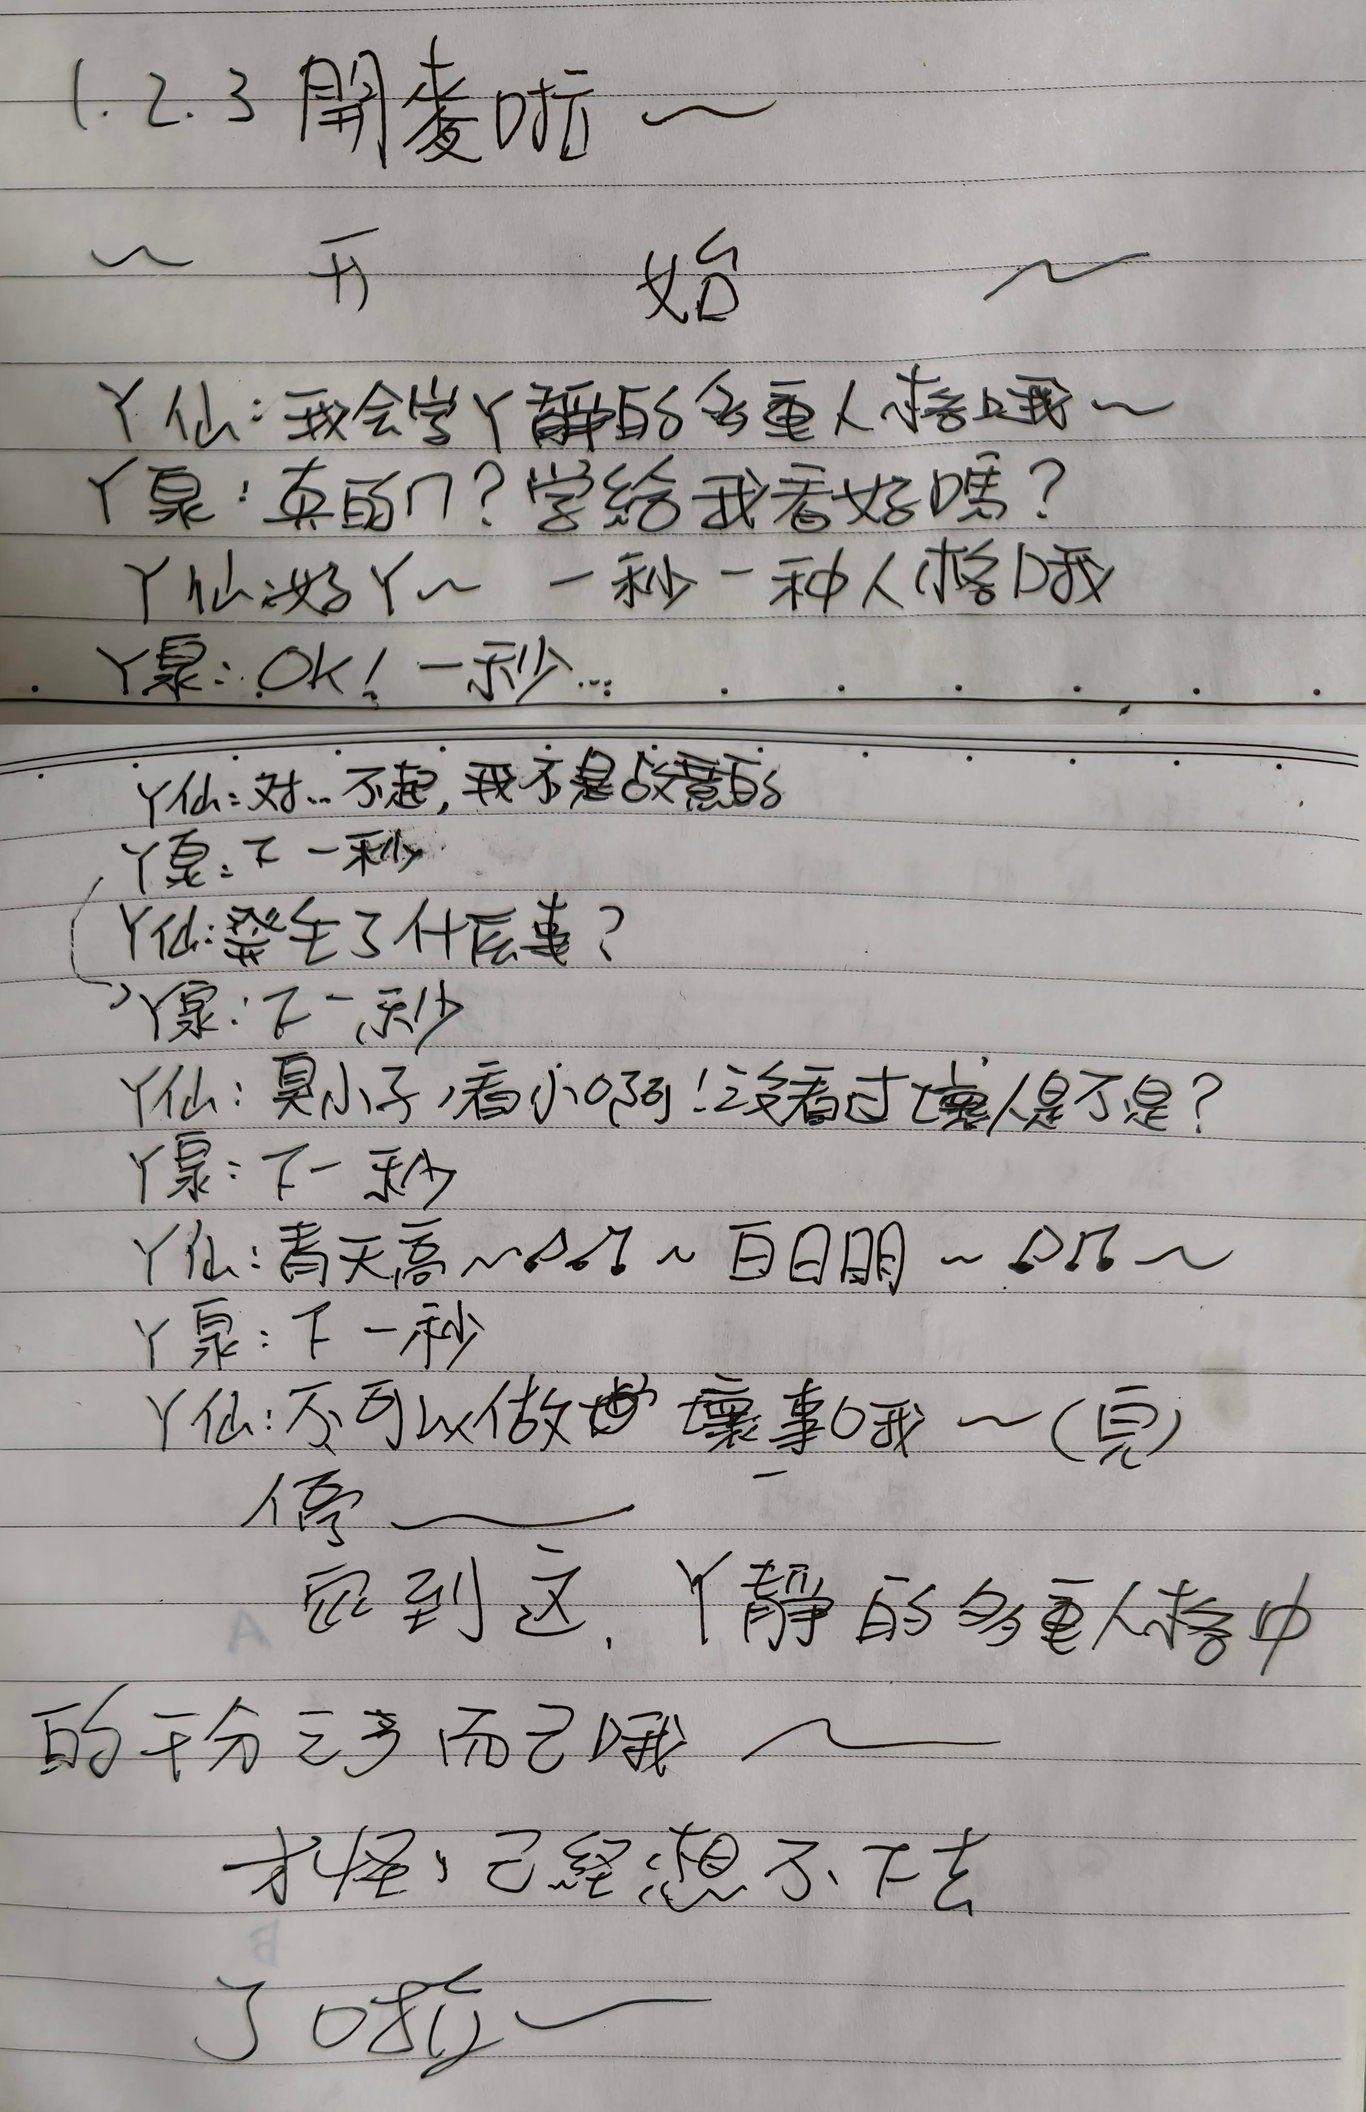 1.2.3開麥啦～
～ 开 始 ～
丫仙:我会学丫靜的多重人格哦～
丫泉:真的ㄇ?学給我看好嗎?
丫仙:好丫～ 一秒一种人格哦
丫泉:OK!一秒...
丫仙:对...不起,我不是故意的
丫泉:下一秒
丫仙:發生了什麼事?
丫泉:下一秒
丫仙:臭小子,看小啊!沒看过壞人是不是?
丫泉:下一秒
丫仙:青天高～♪♫～白日明～♪♫～
丫泉:下一秒
丫仙:不可以做 壞事哦～(完)
停
到这,丫靜的多重人格中
的千分之 而已哦～
才怪,已経想不下去
了啦～